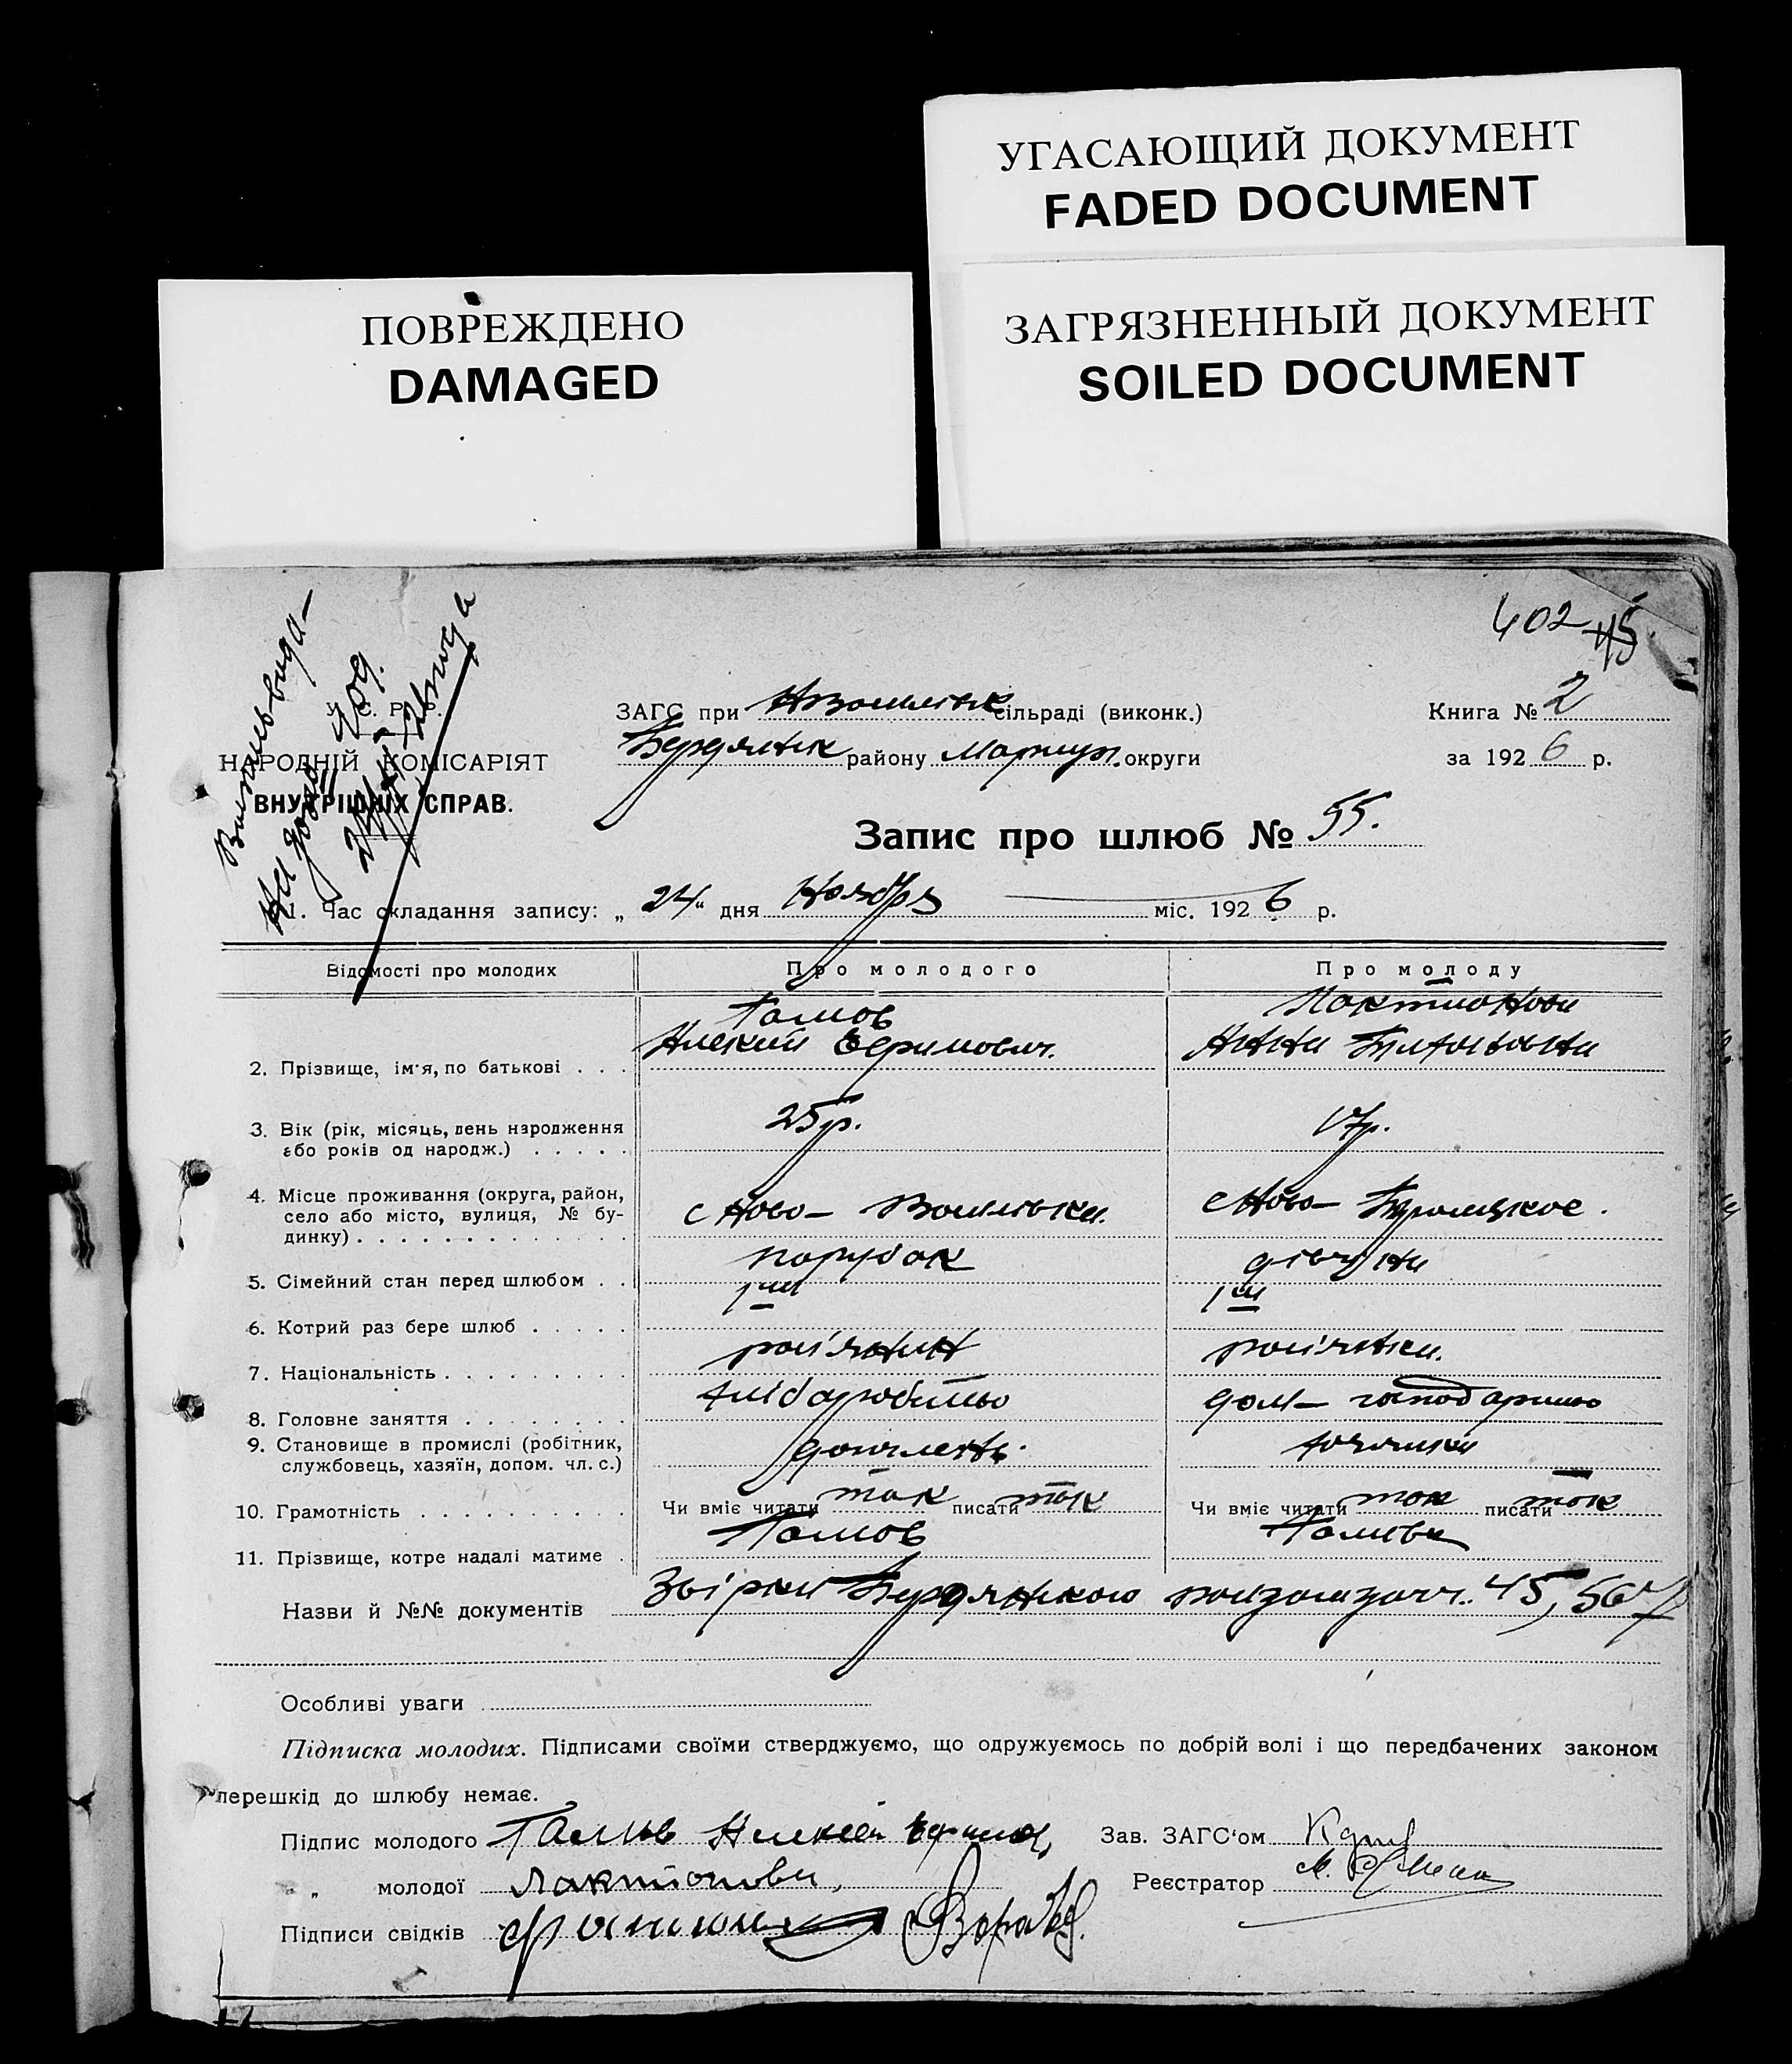 УГАСАЮЩИЙ ДОКУМЕНТ
FADED DOCUMENT
ПОВРЕЖДЕНО
DAMAGED
ЗАГРЯЗНЕННЫЙ ДОКУМЕНТ
SOILED DOCUMENT
402 45
У. С. Р. Р.
НАРОДНІЙ КОМІСАРІЯТ
ВНУТРІШНІХ СПРАВ.
ЗАГС при сільраді (виконк.)
Бердянськ району Маріуп. округи
Книга № 2
за 1926 р.
Запис про шлюб № 55.
1. Час складання запису: „24“ дня Ноября міс. 1926 р.
Відомості про молодих
Про молодого
Про молоду
2. Прізвище, ім'я, по батькові . . .
Галов
Алексій Ефимович.
Лактіонова
Анна
3. Вік (рік, місяць, день народження
або років од народж.) . . . . .
25 р.
17 р.
4. Місце проживання (округа, район,
село або місто, вулиця, № бу-
динку) . . . . . . . . . . . . .
с Ново- Васильвка.
с Ново- Троицкое.
5. Сімейний стан перед шлюбом . .
парубок
дівчина
6. Котрий раз бере шлюб . . . . .
1ий
1ий
7. Національність . . . . . . . . .
росіянин
росіянка.
8. Головне заняття . . . . . . . .
хліборобство
дом- господарство
9. Становище в промислі (робітник,
службовець, хазяїн, допом. чл. с.)
10. Грамотність . . . . . . . . . .
Чи вміє читати так писати так
Чи вміє читати так писати так
11. Прізвище, котре надалі матиме .
Галов
Галова
Назви й №№ документів Бердянського 45, 567
Особливі уваги
Підписка молодих. Підписами своїми стверджуємо, що одружуємось по добрій волі і що передбачених законом
перешкід до шлюбу немає.
Підпис молодого Галов Алексей Ефимов
Зав. ЗАГС'ом
„ молодої Лактіонова
Реєстратор
Підписи свідків